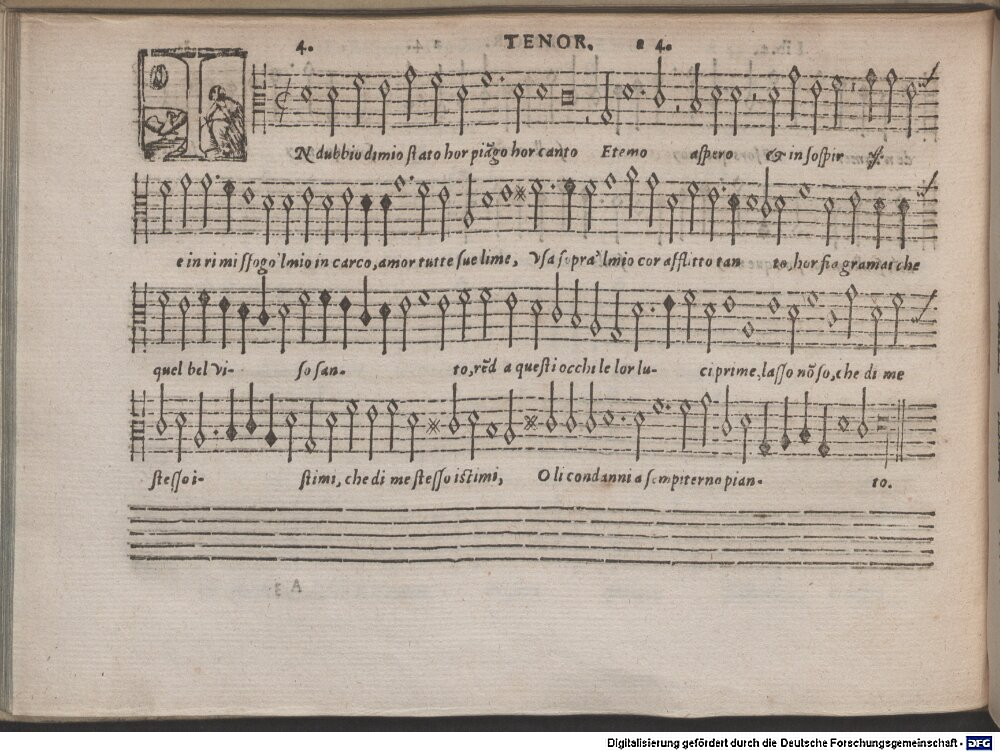 4. TENOR. a 4.
N dubbio di mio stato hor piãgo hor canto Et temo aspero & in sospir
e in rime sfogo'l mio incarco, amor tutte sue lime, Vsa sopra'l mio cor afflitto tan to, hor fia giamai che
quel bel vi- so san- to, rẽd a questi occhi le lor lu- ci prime, lasso nõ so, che di me
stesso i- stimi, che di me stesso istimi, O li condanni a sempiterno pian- to.
Digitalisierung gefördert durch die Deutsche Forschungsgemeinschaft - DFG